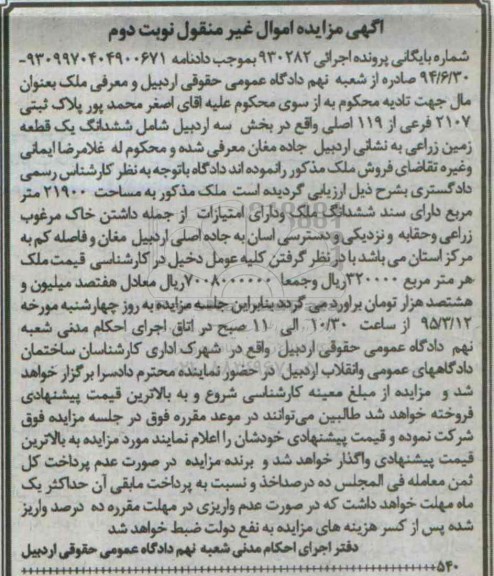 آگهی مزایده اموال غیر منقول نوبت دوم
شماره بایگانی پرونده اجرائی ۹۳۰۲۸۲ بموجب دادنامه ۹۳۰۹۹۷۰۴۰۴۹۰۰۶۷۱-
۹۴/۶/۳۰ صادره از شعبه نهم دادگاه عمومی حقوقی اردبیل و معرفی ملک بعنوان
مال جهت تادیه محکوم به از سوی محکوم علیه اقای اصغر محمد پور پلاک ثبتی
۲۱۰۷ فرعی از ۱۱۹ اصلی واقع در بخش سه اردبیل شامل ششدانگ یک قطعه
زمین زراعی به نشانی اردبیل جاده مغان معرفی شده و محکوم له غلامرضا ایمانی
وغیره تقاضای فروش ملک مذکور رانموده اند دادگاه باتوجه به نظر کارشناس رسمی
دادگستری بشرح ذیل ارزیابی گردیده است ملک مذکور به مساحت ۲۱۹۰۰ متر
مربع دارای سند ششدانگ ملک ودارای امتیازات از جمله داشتن خاک مرغوب
زراعی وحقابه و نزدیکی و دسترسی اسان به جاده اصلی اردبیل مغان و فاصله کم به
مرکز استان می باشد با در نظر گرفتن کلیه عومل دخیل در کارشناسی قیمت ملک
هر متر مربع ۳۲۰۰۰۰ریال وجمعا ۷۰۰۸۰۰۰۰۰۰ریال معادل هفتصد میلیون و
هشتصد هزار تومان براورد می گردد بنابراین جلسه مزایده به روز چهارشنبه مورخه
۹۵/۳/۱۲ از ساعت ۱۰/۳۰ الی ۱۱ صبح در اتاق اجرای احکام مدنی شعبه
نهم دادگاه عمومی حقوقی اردبیل واقع در شهرک اداری کارشناسان ساختمان
دادگاههای عمومی وانقلاب اردبیل در حضور نماینده محترم دادسرا برگزار خواهد
شد و مزایده از مبلغ معینه کارشناسی شروع و به بالاترین قیمت پیشنهادی
فروخته خواهد شد طالبین می‌توانند در موعد مقرره فوق در جلسه مزایده فوق
شرکت نموده و قیمت پیشنهادی خودشان را اعلام نمایند مورد مزایده به بالاترین
قیمت پیشنهادی واگذار خواهد شد و برنده مزایده در صورت عدم پرداخت کل
ثمن معامله فی المجلس ده درصداخذ و نسبت به پرداخت مابقی آن حداکثر یک
ماه مهلت خواهد داشت که در صورت عدم واریزی در مهلت مقرره ده درصد واریز
شده پس از کسر هزینه های مزایده به نفع دولت ضبط خواهد شد
دفتر اجرای احکام مدنی شعبه نهم دادگاه عمومی حقوقی اردبیل
۵۴۰